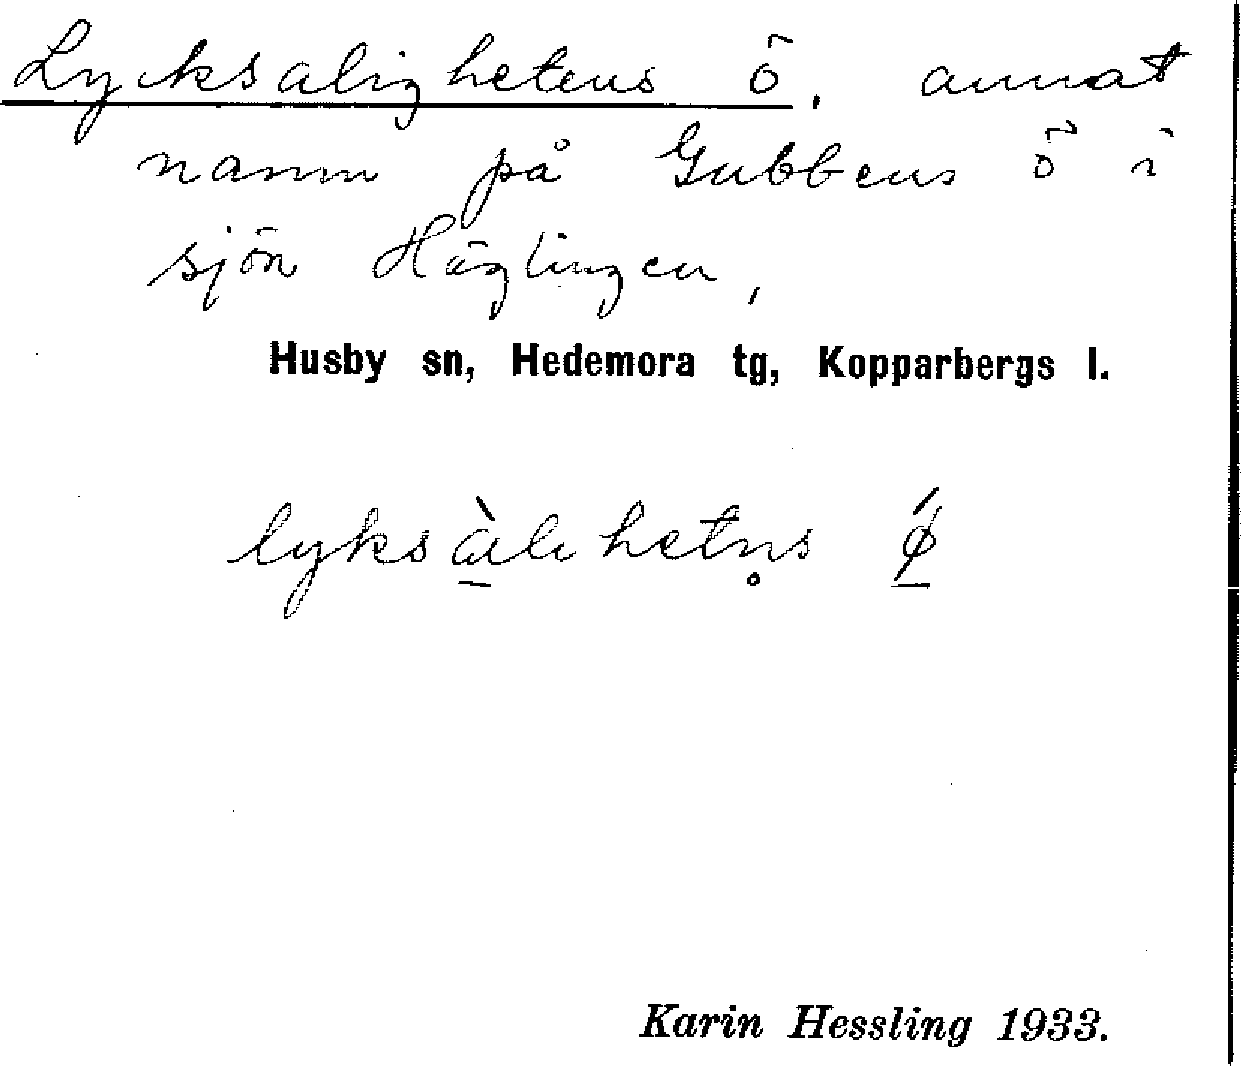 Lycksalighetens ö, annat
namn på Gubbens ö i
sjön Häglingen,
Husby sn, Hedemora tg, Kopparbergs l.
lyksàlihetn̥s ǿ
Karin Hessling 1933.